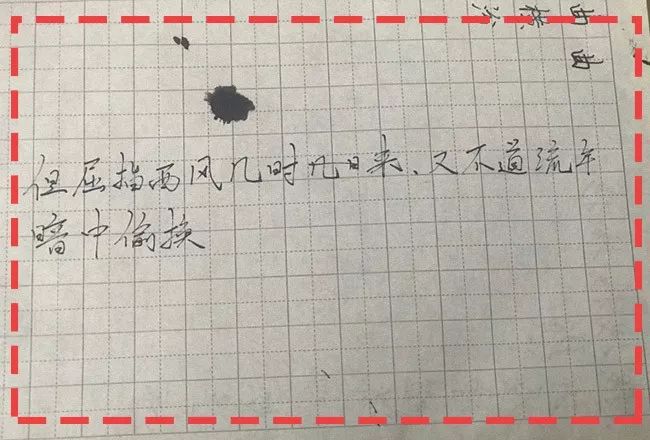 但屈指西风几时日来、又不道流年
暗中偷换